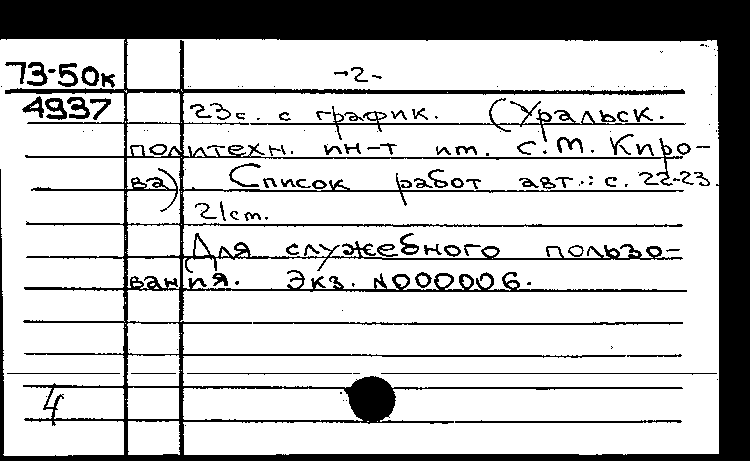 73-50к
-2-
4937
23с. с график. (Уральск.
политехн. ин-т им. С.М. Киро-
ва). Список работ авт.: с. 22-23.
21 cm.
Для служебного пользо-
вания. Экз. N000006.
4